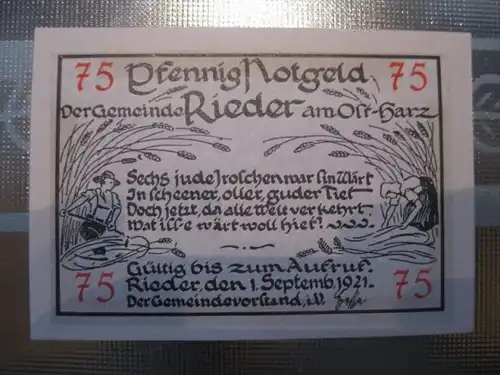 75 Pfennig Notgeld 75
Der Gemeinde Rieder am Ost-Harz
Sechs jude Jroschen war sin Wärt
In scheener, oller, guder Tiet
Doch jetzt, da alle Welt verkehrt.
Wat iss'e wärt woll hiet?
Gültig bis zum Aufruf.
75 Rieder, den 1. Septemb. 1921. 75
Der Gemeindevorstand, i.V.